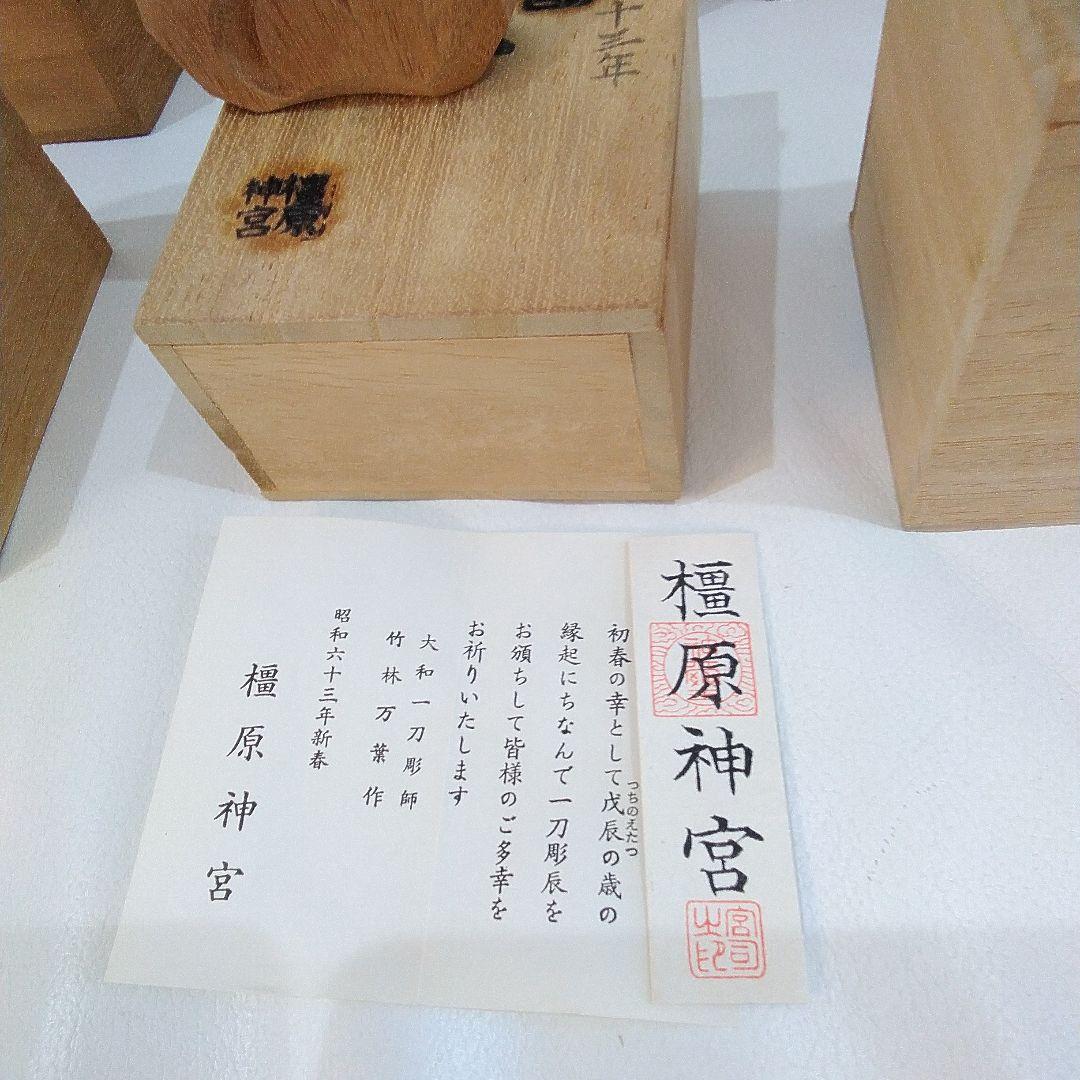 十三年
橿原
神宮
橿原神宮
宮司
之印
初春の幸として戊辰の歳の
つちのえたつ
縁起にちなんで一刀彫辰を
お頒ちして皆様のご多幸を
お祈りいたします
大和一刀彫師
竹林万葉作
昭和六十三年新春
橿原神宮